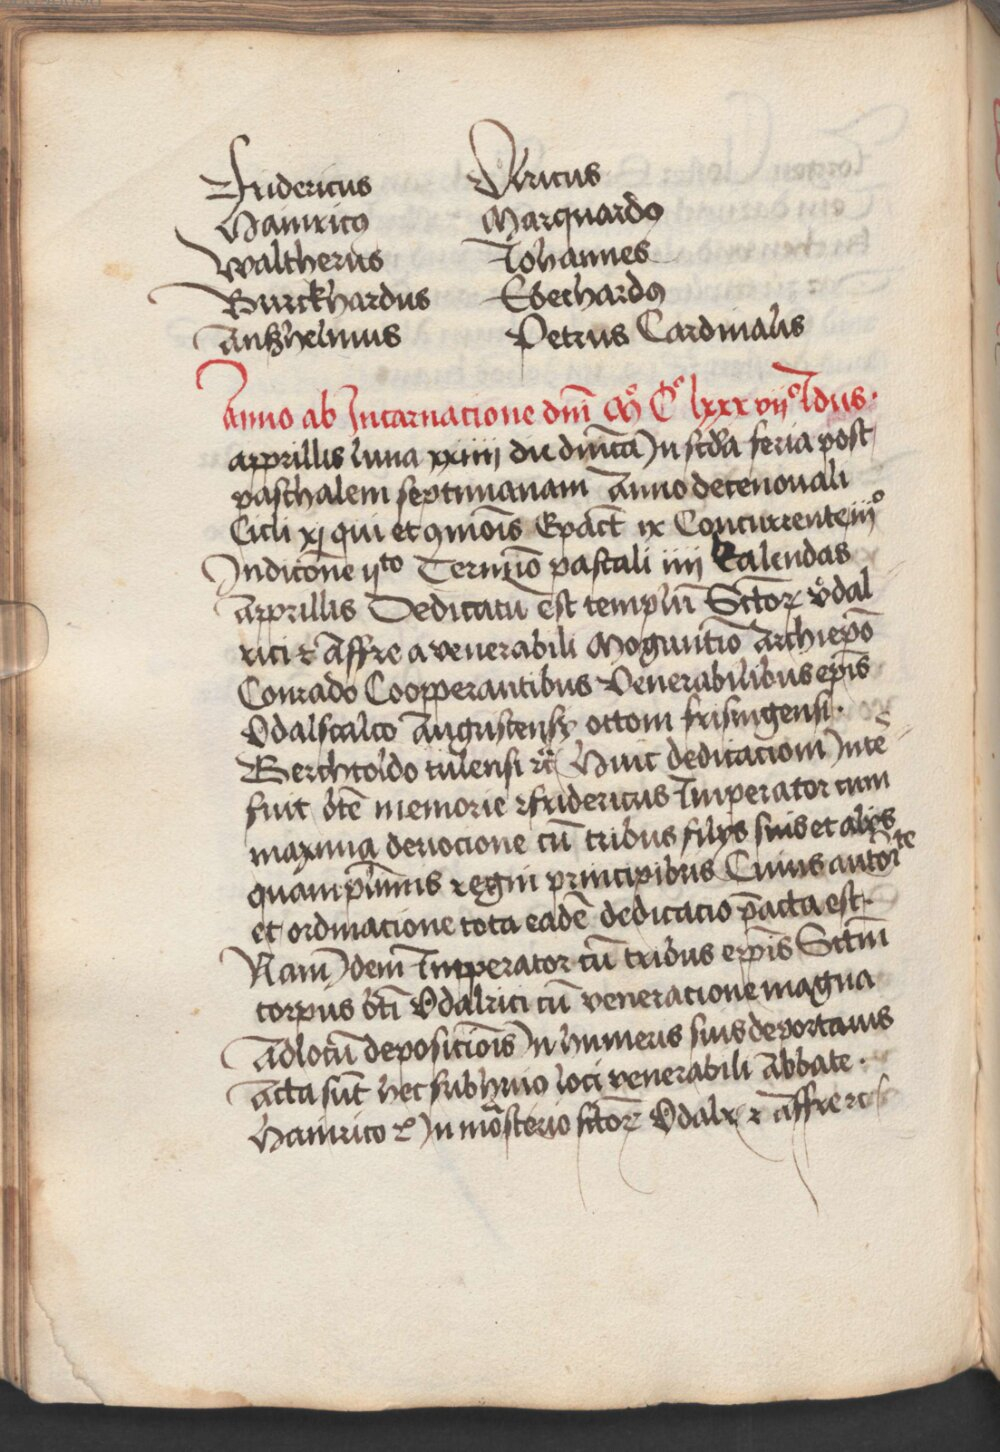 Fridericus
Hainricꝰ
Waltherus
Burckhardus
Anßhelmus
Vlricus
Marquardꝰ
Johannes
Eberhardꝰ
Petrus Cardinalis
Anno ab Incarnacione dnī Mͦ Cͦ lxxxvijͦ Idus
apprillis luna xxiiii die dnīca In scd̄a feria post
paschalem septimanam Anno decenouali
Cicli xj qui et ꝯmōis Epact̄ ix Concurrente iijͦ
Indicōne vͭͦ Termīo pascali iiij Kalendas
Apprillis Dedicatū est templū Sctōꝝ vͦdal
rici ⁊ Affre a venerabili Moguntīo Archiepō
Conrado Cooperantibus Venerabilibus epīs
Odalscalco Augustensꝭ ottoni frisingensi
Berchtoldo tulensi ⁊c̄ Huic dedicacioni Inte
fuit bt̄e memorie Fridericus Imperator cum
maxima deuocione cū tribus filys suis et alys
quamplimīs regni principibus Cuius autorᵗᵉ
et ordinacione tota eadē dedicacio pacta est
Nam Idem Imperator cū tribus epīs Sctm̄
corpus bt̄i Odalrici cū veneracione magna
Ad locū deposiciōis In humeris suis deportauis
Acta sūt hec sub hͦuio loci venerabili Abbate
Hainrico ⁊ In mōsterio sctōꝝ Odalr ⁊ Affre ⁊c